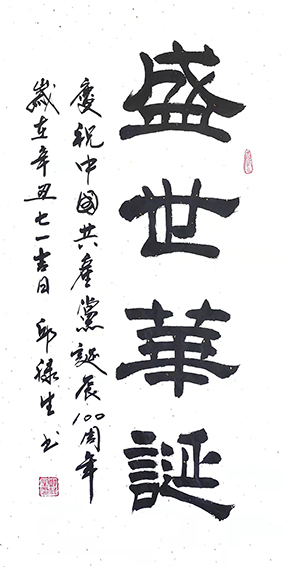 盛世華誕
慶祝中國共產黨誕辰100周年
歲在辛丑七一吉日 邱祿生书